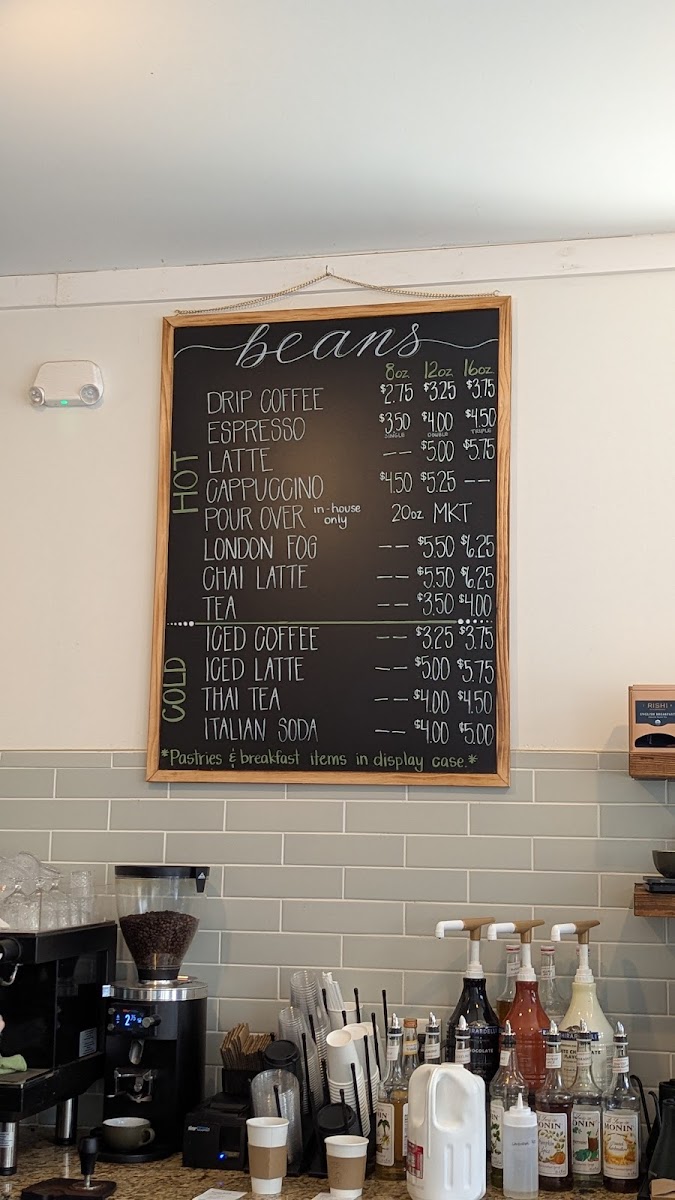 beans
8oz 12oz 16oz.
DRIP COFFEE $2.75 $3.25 $3.75
ESPRESSO $3.50 $4.00 $4.50
SINGLE DOUBLE TRIPLE
HOT
LATTE -- $5.00 $5.75
CAPPUCCINO $4.50 $5.25 --
POUR OVER in-house only 20oz MKT
LONDON FOG -- $5.50 $6.25
CHAI LATTE -- $5.50 $6.25
TEA -- $3.50 $4.00
COLD
ICED COFFEE -- $3.25 $3.75
ICED LATTE -- $5.00 $5.75
THAI TEA -- $4.00 $4.50
ITALIAN SODA -- $4.00 $5.00
*Pastries & breakfast items in display case.*
RISHI
ENGLISH BREAKFAST
CHOCOLATE
MONIN